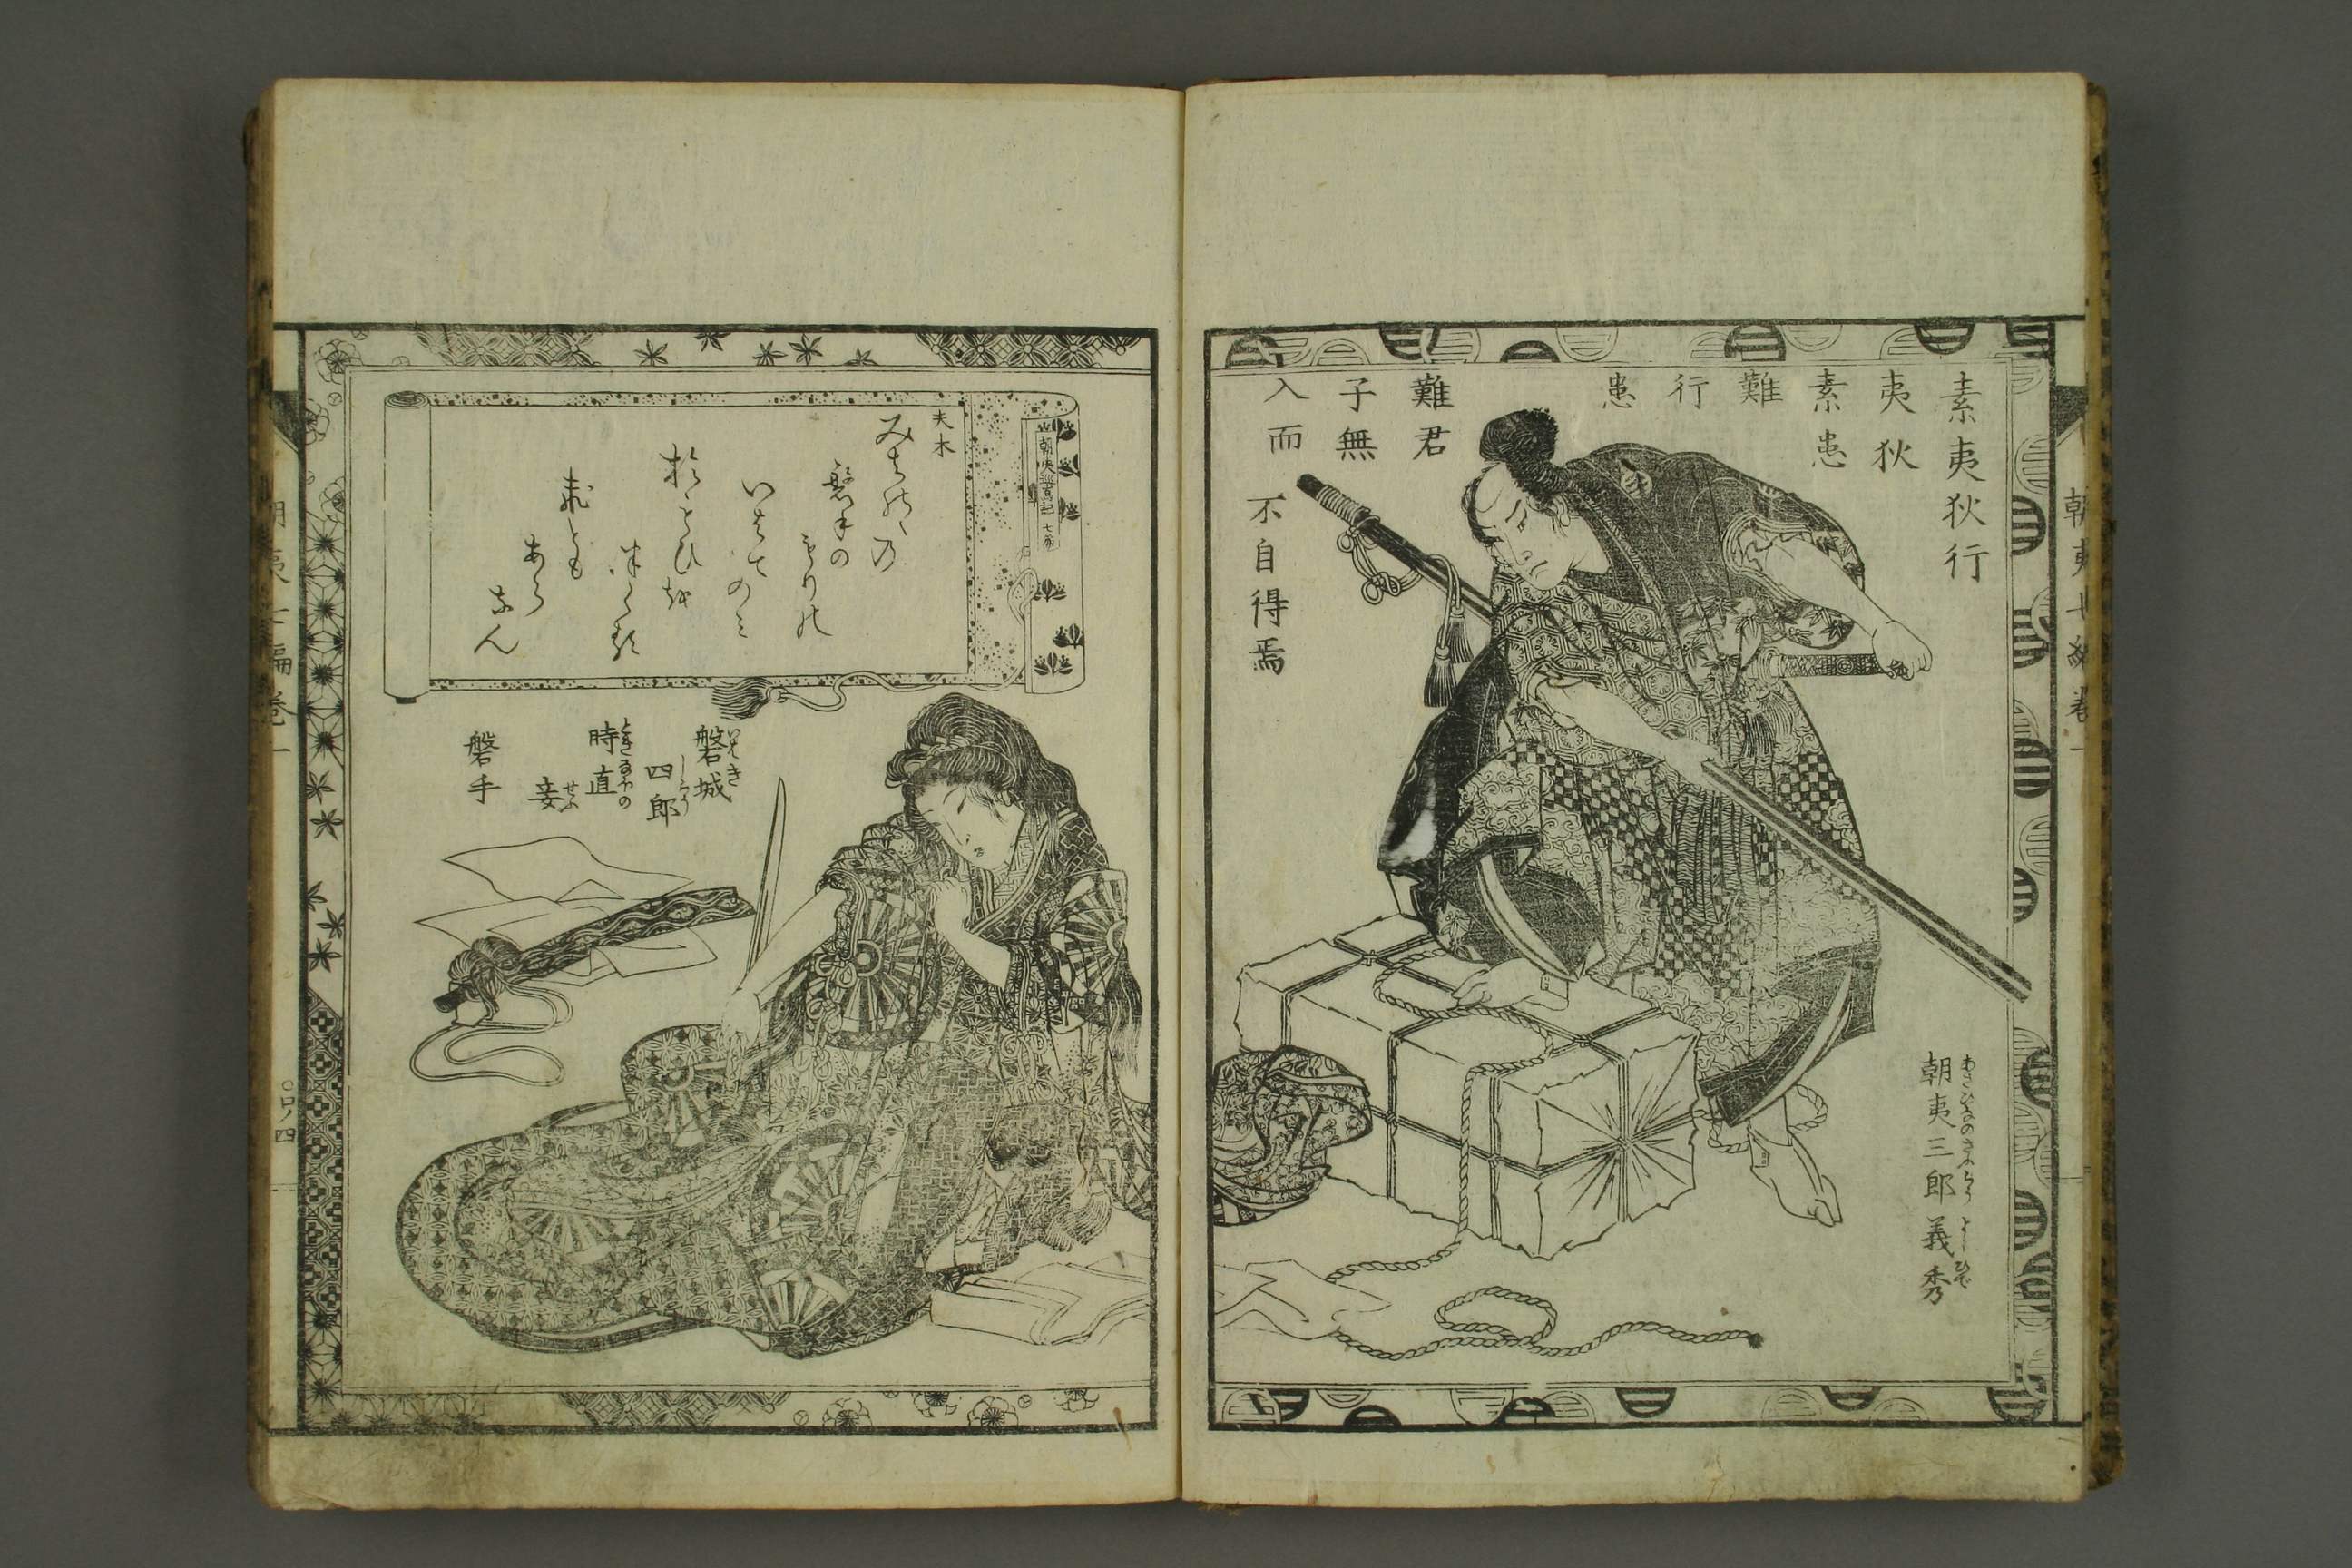 朝夷七編巻一
素夷狄行
夷狄
素患
難
行
患
難君
子無
入而
不自得焉
朝夷三郎義秀
あさひなのさふらう よしひで
夫木
みちのくの
磐手の
もりの
いはでのみ
おもひを
つくる
人もあらなん
磐城
いはき
四郎
しらう
時直
ときなほの
妾
せふ
磐手
朝夷巡嶋記 七編
朝夷七編巻一
○口ノ四